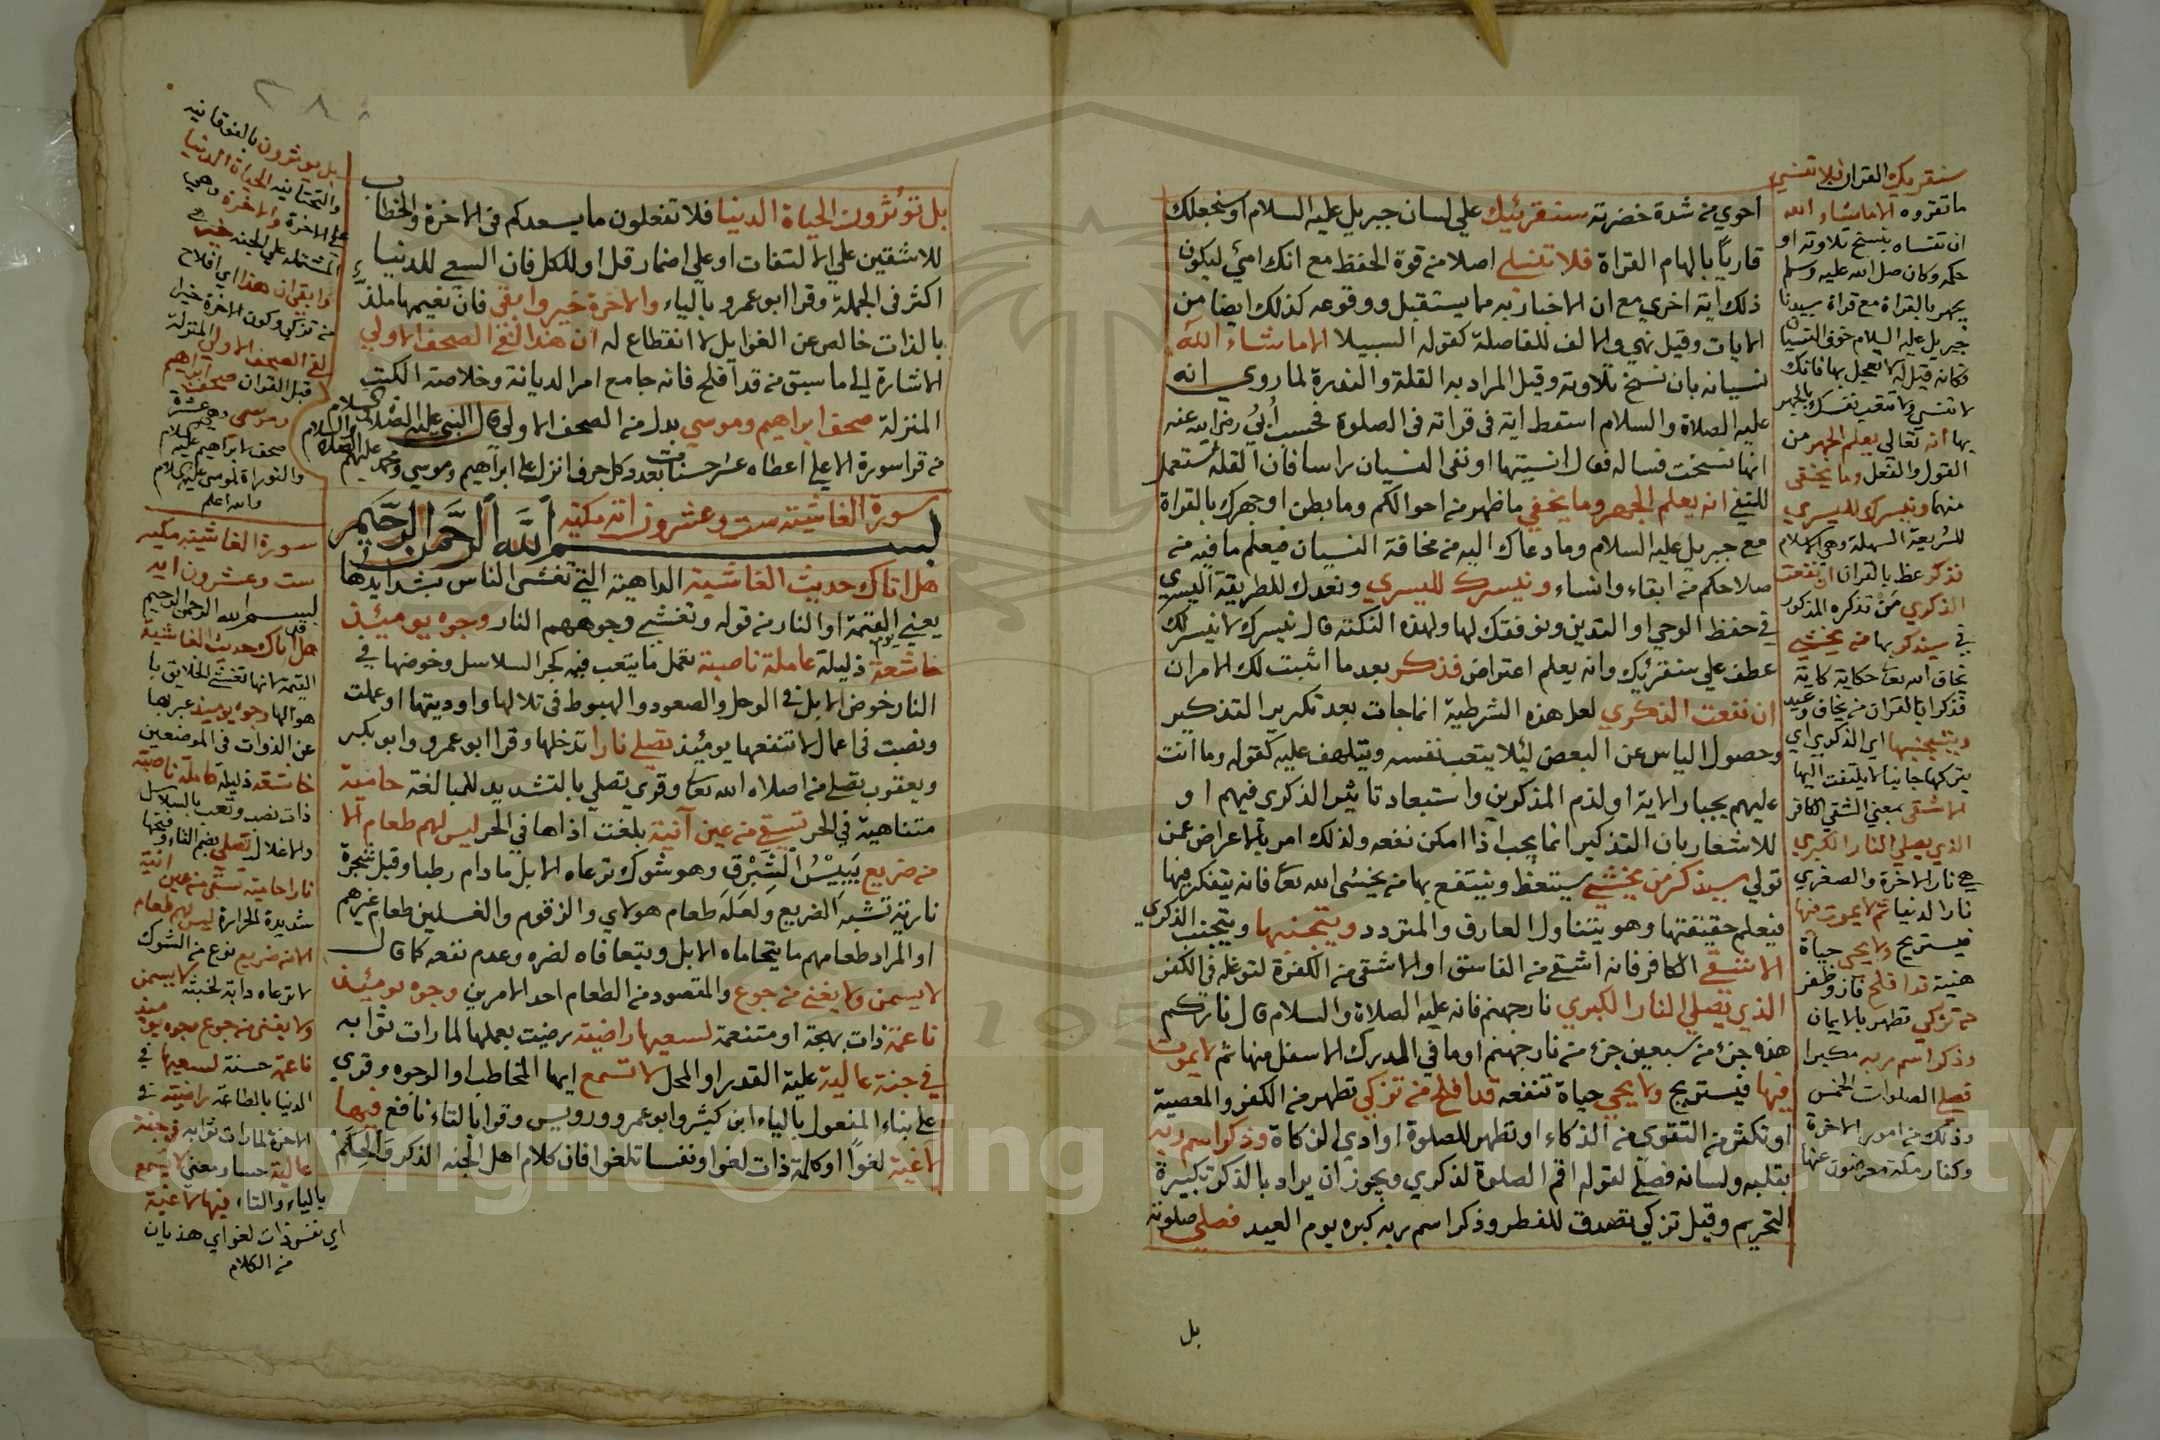 احوي من شدة خضرته سنقرئك علي لسان جبريل عليه السلام او سنجعلك
قاريًا بالهام القراة فلا تنسي اصلا من قوة الحفظ مع انك امي ليكون
ذلك اية اخري مع ان الاخبار به مما يستقبل ووقوعه كذلك ايضا من
الايات وقيل نهي والالف للفاصلة كقوله السبيلا الا ما شاء الله
نسيانه بان نسخ تلاوته وقيل المراد به القلة والندرة لما روي انه
عليه الصلاة والسلام اسقط اية في قراته في الصلوة فحسب أبيّ رضي الله عنه
انها نسخت فساله فقال انسيتها او نفي النسيان راسا فان القلة تستعمل
للنفي انه يعلم الجهر وما يخفي ما ظهر من احوالكم وما بطن او جهرك بالقراة
مع جبريل عليه السلام وما دعاك اليه من مخافة النسيان فيعلم ما فيه من
صلاحكم من ابقاء وانساء ونيسرك لليسري ونعدك للطريقة اليسري
في حفظ الوحي او التدين ونوفقك لها ولهذه النكتة قال نيسرك لا نيسر لك
عطف علي سنقرئك وانه يعلم اعتراض فذكر بعد ما اثبت لك الامران
ان نفعت الذكري لعل هذه الشرطية انما جات بعد تكرير التذكير
وحصول الياس عن البعض ليلا يتعب نفسه ويتلهف عليه كقوله وما انت
عليهم بجبار الاية او لذم المذكوين واستبعاد تاثير الذكري فيهم او
للاشعار بان التذكير انما يجب اذا امكن نفعه ولذلك امر بالاعراض عمن
تولي سيذكر من يخشي سيتعظ وينتفع بها من يخشي الله تعا فانه يتفكر فيها
فيعلم حقيقتها وهو يتناول العارف والمتردد ويتجنبها ويتجنب الذكري
الاشقي الكافر فانه اشقي من الفاسق او الاشقي من الكفرة لتوغله في الكفر
الذي يصلي النار الكبري نار جهنم فانه عليه الصلاة والسلام قال ناركم
هذه جزء من سبعين جزء من نار جهنم او ما في الدرك الاسفل منها ثم لا يموت
فيها فيستريح ولا يحيي حياة تنفعه قد افلح من تزكي تطهر من الكفر والمعصية
او تكثر من التقوي من الذكاء او تطهر للصلوة او ادي الزكاة وذكر اسم ربه
بقلبه ولسانه فصلي لقوله اقم الصلوة لذكري ويجوز ان يراد بالذكر تكبيرة
التحريم وقيل تزكي تصدق للفطر وذكر اسم ربه كبره يوم العيد فصلي صلوته
بل
سنقريك القران فلا تنسي
ما تقروه الا ما شاء الله
ان تنساه بنسخ تلاوته او
حكمه وكان صل الله عليه وسلم
يجهر بالقراة مع قراة سيدنا
جبريل عليه السلام خوف النسيان
فكانه قيل له لا تعجل بها فانك
لا تنسي ولا تتعب نفسك بالجهر
بها انه تعالي يعلم الجهر من
القول والفعل وما يخفي
منهما ونيسرك لليسري
للشريعة السهلة وهي الاسلام
فذكر عظ بالقران ان نفعت
الذكري مَنْ تذكره المذكور
في سيذكر بها من يخشي
يخاف الله تعا حكاية كاية
فذكر بالقران من يخاف وعيد
ويتجنبها اي الذكري اي
يتركها جانبا لا يلتفت اليها
الاشقي بمعني الشقي الكافر
الذي يصلي النار الكبري
هي نار الاخرة والصغري
نار الدنيا ثم لا يموت فيها
فيستريح ولا يحيي حياة
هنية قد افلح فاز وظفر
من تزكي تطهر بالايمان
وذكر اسم ربه مكبرا
فصلي الصلوات الخمس
وذلك من امور الاخرة
وكفار مكة معرضون عنها
بل تؤثرون الحياة الدنيا فلا تفعلون ما يسعدكم في الاخرة والخطاب
للاشقين علي الالتفات او علي اضمار قل او للكل فان السعي للدنيا
اكثر في الجملة وقرا ابو عمرو بالياء والاخرة خير وابقي فان نعيمها ملذ
بالذات خالص عن الغوايل لا انقطاع له ان هذا لفي الصحف الاولي
الاشارة الي ما سبق من قد افلح فانه جامع امر الديانة وخلاصة الكتب
المنزلة صحف ابراهيم وموسي بدل من الصحف الاولي قال النبي عليه الصلاة والسلام
من قرا سورة الاعلي اعطاه عشر حسنات بعدد كل حرف انزل علي ابراهيم وموسي ومحمد عليهم الصلاة والسلام
سورة الغاشية ست وعشرون اية مكية
بسم الله الرحمن الرحيم
هل اتاك حديث الغاشية الداهية التي تغشي الناس بشدايدها
يعني يوم القيمة او النار من قوله وتغشي وجوههم النار وجوه يومئذ
خاشعة ذليلة عاملة ناصبة تعمل ما يتعب فيه كجر السلاسل وخوضها في
النار خوض الابل في الوحل والصعود والهبوط في تلالها واوديتها او عملت
ونصبت في اعمال لا تنفعها يومئذ تصلي نارا تدخلها وقرا ابو عمرو وابو بكر
ويعقوب تصلي من اصلاه الله تعا وقري تصلي بالتشديد للمبالغة حامية
متناهية في الحر تسقي من عين آنية بلغت اذاها في الحر ليس لهم طعام الا
من ضريع يَبِيْسُ الشِّبْرِقِ وهو شوك ترعاه الابل ما دام رطبا وقيل شجرة
نارية تشبه الضريع ولعله طعام هولاي والزقوم والغسلين طعام غيرهم
او المراد طعامهم ما يتحاماه الابل ويتعافاه لضره وعدم نفعه كما قال
لا يسمن ولا يغني من جوع والمقصود من الطعام احد الامرين وجوه يومئذ
ناعمة ذات بهجة او متنعمة لسعيها راضية رضيت بعملها لما رات ثوابه
في جنة عالية علية القدر او المحل لا تسمع ايها المخاطب او الوجوه وقري
علي بناء المفعول بالياء ابن كثير وابو عمرو ورويس وقرا بالتاء نافع فيها
لاغية لغوًا او كلمة ذات لغو او نفسا تلغوا فان كلام اهل الجنة الذكر والحِكَمُ
بل يوثرون بالفوقانيه
والتحتانيه الحياة الدنيا
علي الاخرة والاخرة وهي
المشتمله علي الجنه خير
وابقي ان هذا اي افلاح
من تزكي وكون الاخرة خير
لفي الصحف الاولي المنزلة
قبل القران صحف ابراهيم
وموسي وهي عشرة
صحف لابراهيم عليه السلام
والتوراة لموسي عليه السلام
والله اعلم
سورة الغاشيه مكيه
ست وعشرون ايه
بسم الله الرحمن الرحيم
هل اتاك حديث الغاشية
القيمة لانها تغشي الخلايق با
هوالها وجوه يوميذ عبر بها
عن الذوات في الموضعين
خاشعه ذليلة عاملة ناصبة
ذات نصب وتعب بالسلاسل
والاغلال تصلي بضم التاء وفتحها
نارا حاميه تسقي من عين انية
شديدة الحرارة ليس لهم طعام
الا من ضريع نوع من الشوك
لا ترعاه دابة لخبثه لا يسمن
ولا يغني من جوع وجوه يوميذ
ناعمة حسنة لسعيها في
الدنيا بالطاعة راضية في
الاخرة لما رات ثوابه في جنة
عالية حسا ومعني لا يسمع
بالياء والتاء فيها لاغية
اي نفس ذات لغو اي هذيان
من الكلام
Copyright © King Saud University
1957